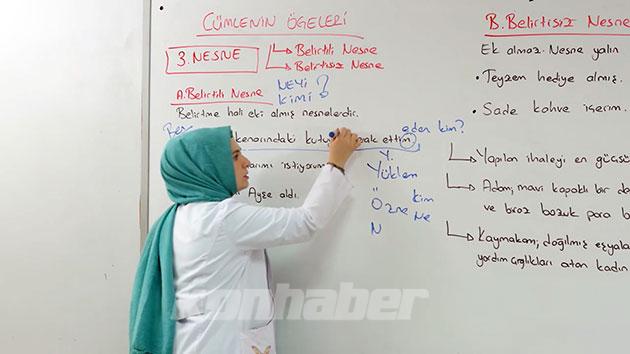 CÜMLENİN ÖGELERİ
3. NESNE
Belirtili Nesne
Belirtisiz Nesne
A. Belirtili Nesne
NEYİ
KİMİ ?
Belirtme hali eki almış nesnelerdir.
Ben
eden kim?
kenarındaki kutu
ettim
istiyorum
Ayşe aldı.
Y.
Yüklem
Ö
Özne
Kim
Ne
N
B. Belirtisiz Nesne
Ek almaz. Nesne yalın
• Teyzem hediye almış.
• Sade kahve içerim.
Yapılan ihaleyi en güçsüz
Adam; mavi kapaklı bir de
ve biraz bozuk para b
Kaymakam; dağılmış eşyala
yardım çığlıkları atan kadın
konhaber